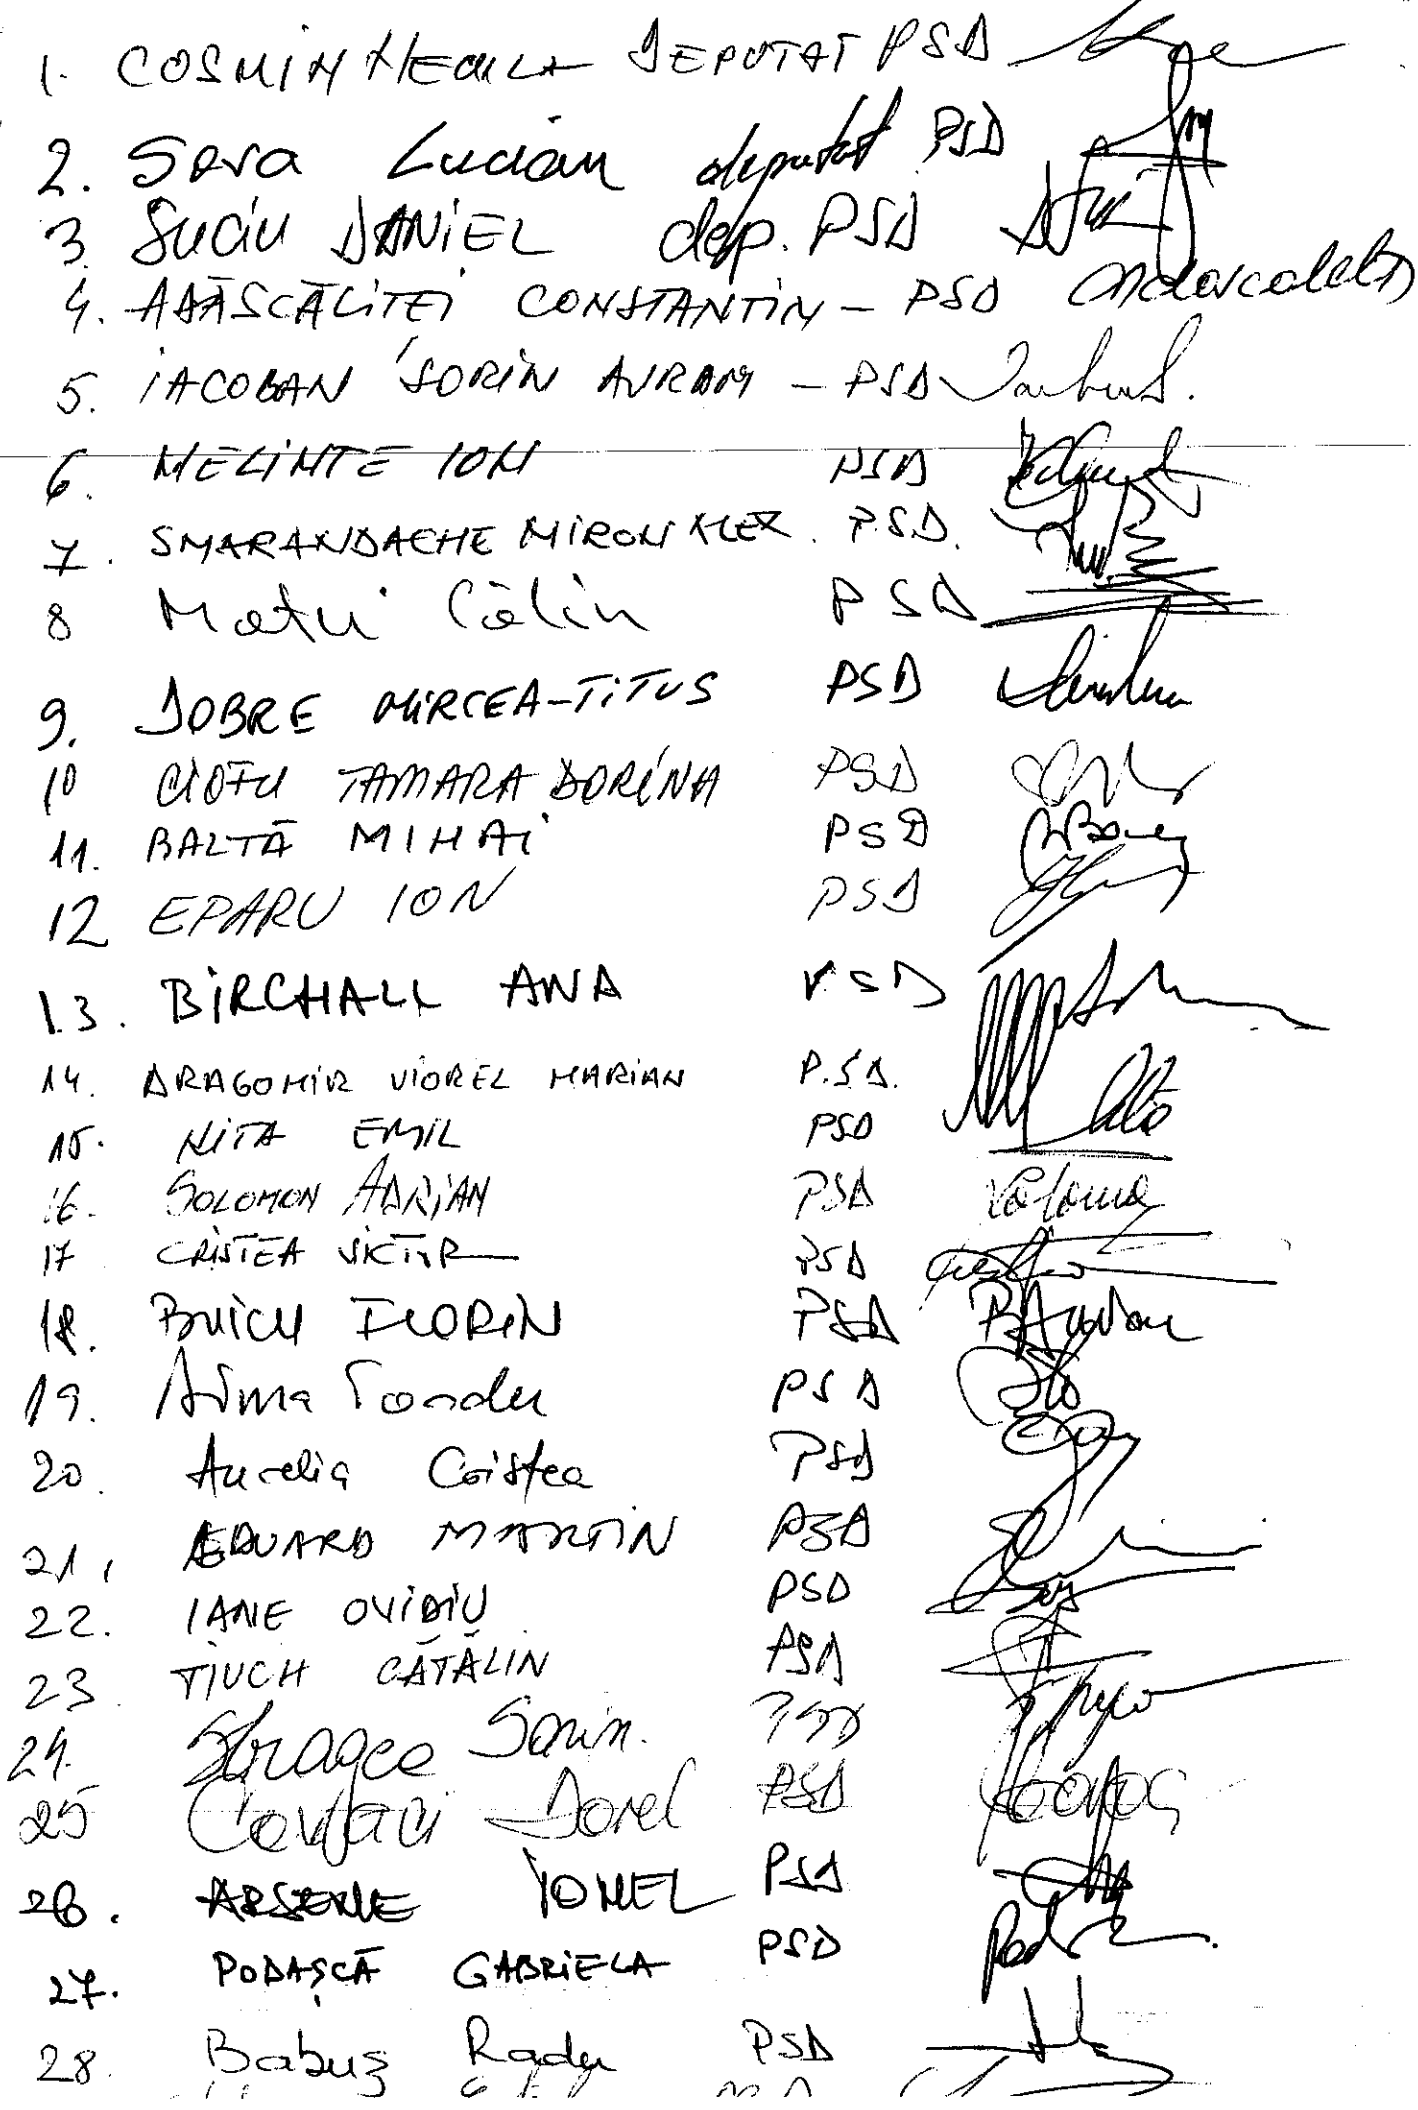 1. COSMIN NECULA DEPUTAT PSD
2. Sova Lucian deputat PSD
3. SUCIU DANIEL dep. PSD
4. ADĂSCĂLIȚEI CONSTANTIN - PSD
5. IACOBAN SORIN AVRAM - PSD
6. MELINTE ION PSD
7. SMARANDACHE MIRON ALEX. P.S.D.
8 Matei Călin PSD
9. DOBRE MIRCEA-TITUS PSD
10 CIOFU TAMARA DORINA PSD
11. BALTĂ MIHAI PSD
12 EPARU ION PSD
13. BIRCHALL ANA PSD
14. DRAGOMIR VIOREL MARIAN P.S.D.
15. NITA EMIL PSD
16. SOLOMON ADRIAN PSD Solomon
17 CRISTEA VICTOR PSD
18. BUICU FLORIN PSD
19. PSD
20. Aurelia Cristea PSD
21, EDUARD MARTIN PSD
22. IANE OVIDIU PSD
23. TIUCH CĂTĂLIN PSD
24. Stragea Sorin. PSD
25 Covaci Dorel PSD
26. ARSENE IONEL PSD
27. PODAȘCĂ GABRIELA PSD
28. Babuș Radu PSD